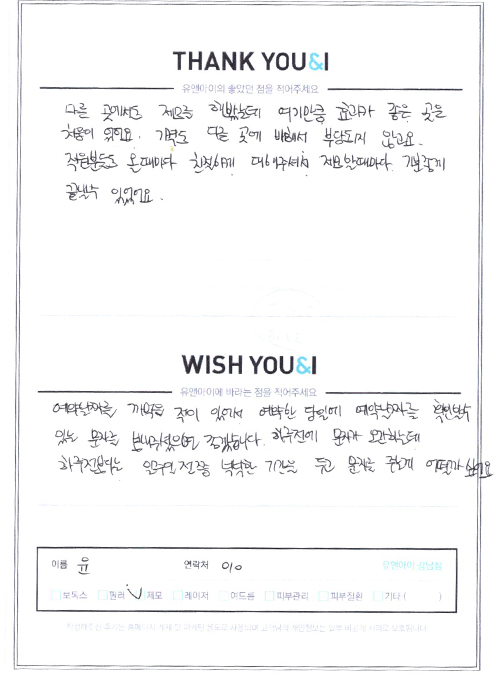 THANK YOU&I
유앤아이의 좋았던 점을 적어주세요
다른 곳에서도 제모를 해봤는데 여기만큼 효과가 좋은 곳은
처음이 었어요. 가격도 다른 곳에 비해서 부담되지 않고요.
직원분들도 올때마다 친절하게 대해주셔서 제모할때마다 기분좋게
끝낼수 있었어요.
WISH YOU&I
유앤아이에 바라는 점을 적어주세요
예약날짜를 까먹을 적이 있어서 예약한 당일에 예약날짜를 확인할수
있는 문자를 보내주셨으면 좋겠습니다. 하루전에 문자가 오긴하는데
하루전보다는 일주일 전쯤 넉넉한 기간을 두고 문자를 주는게 어떨까 싶어요
이름 윤 연락처 010 유앤아이 강남점
보톡스 필러 제모 레이저 여드름 피부관리 피부질환 기타 ( )